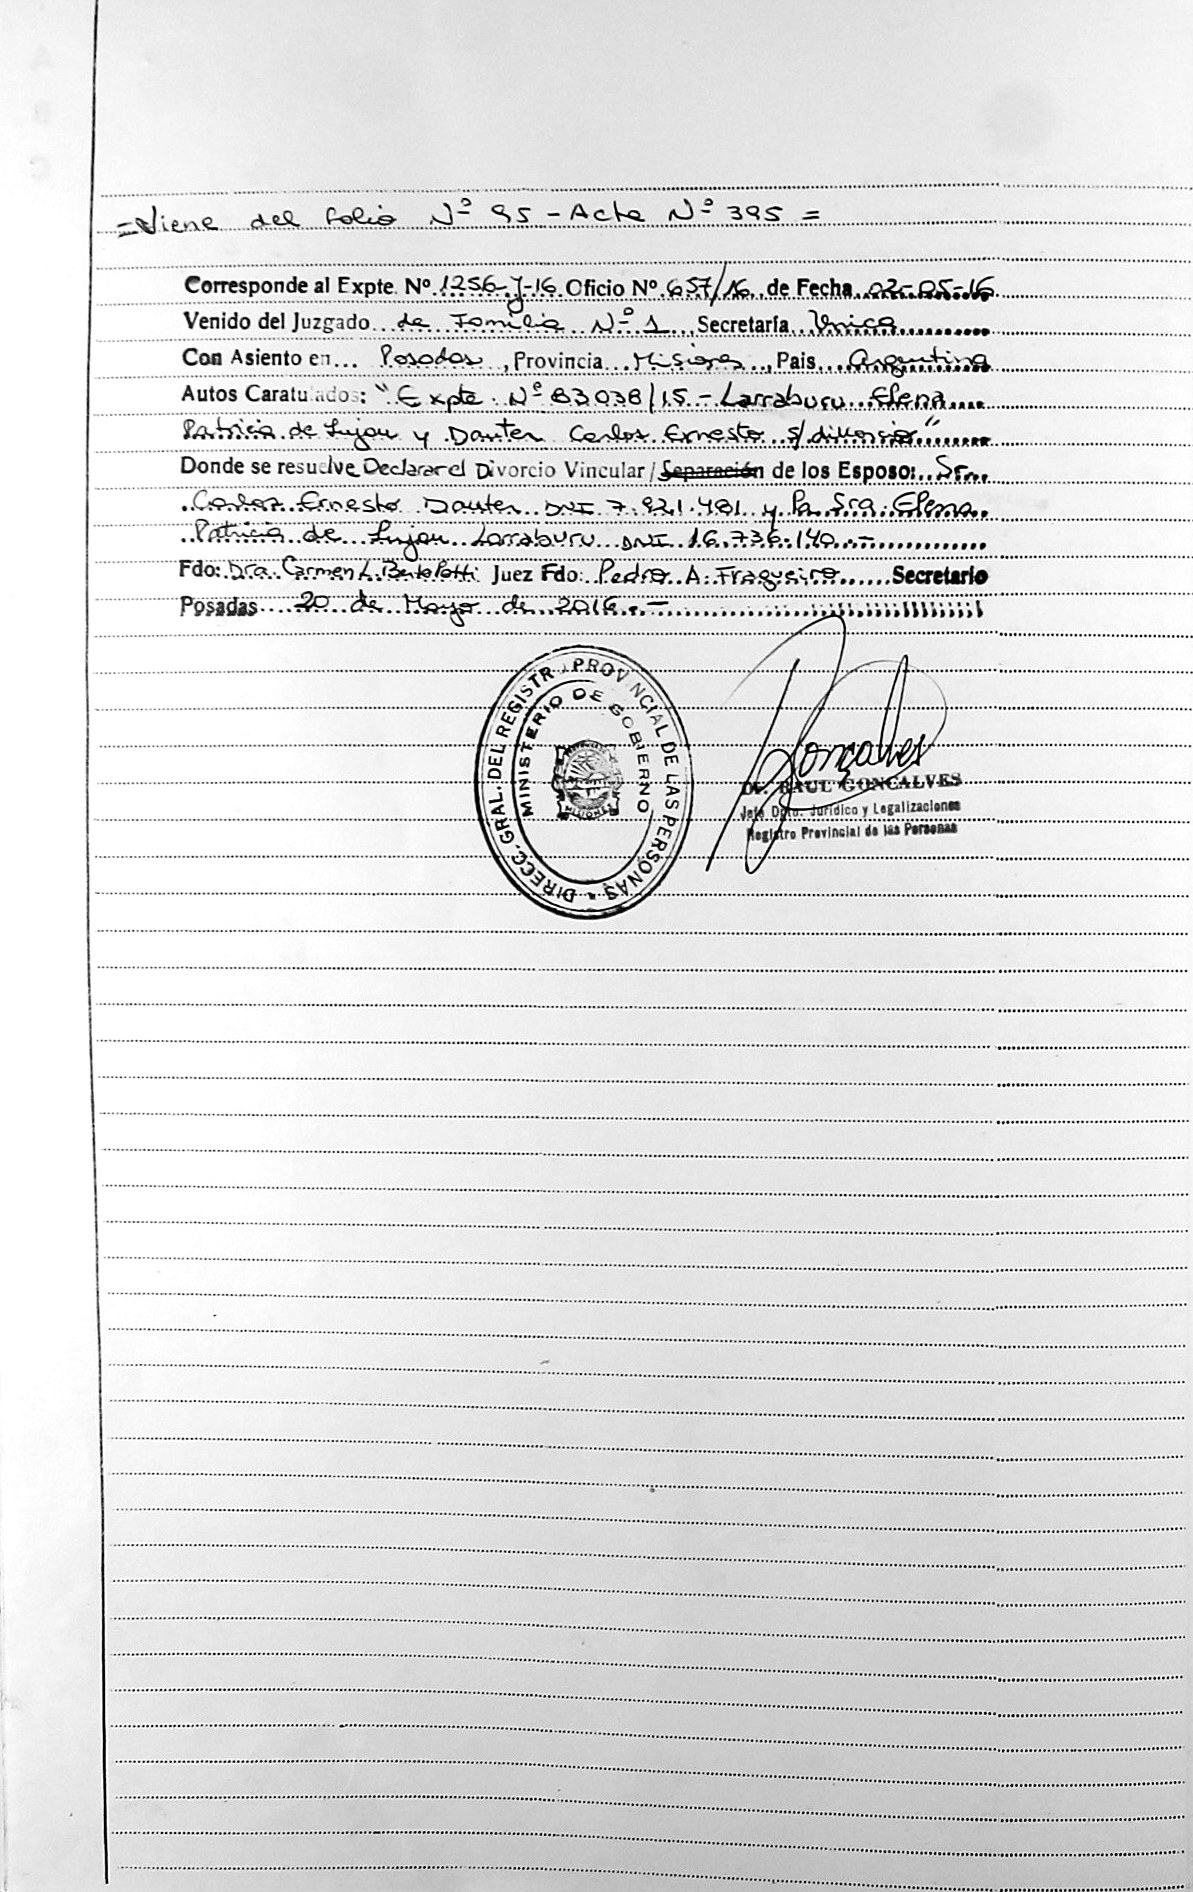 =Viene del folio Nº 95 - Acta Nº 395 =
Corresponde al Expte. Nº 1256-J-16 Oficio Nº 657/16 de Fecha 02-05-16
Venido del Juzgado de Familia Nº 1, Secretaría Unica
Con Asiento en Posadas, Provincia Misiones, Pais Argentina
Autos Caratulados: "Expte. Nº 83038/15 - Larraburu Elena
Patricia de Lujan y Dauter Carlos Ernesto s/divorcio"
Donde se resuelve Declarar el Divorcio Vincular / Separación de los Esposo: Sr.
Carlos Ernesto Dauter DNI 7.821.481 y la Sra. Elena
Patricia de Lujan Larraburu DNI 16.736.140.-
Fdo: Dra. Carmen L. Bertolotti Juez Fdo: Pedro A. Fragueiro Secretario
Posadas 20 de Mayo de 2016.-
DIRECC. GRAL. DEL REGISTR. PROVINCIAL DE LAS PERSONAS
MINISTERIO DE GOBIERNO
MISIONES
Gonçalves
Dr. RAUL GONCALVES
Jefe Dpto. Jurídico y Legalizaciones
Registro Provincial de las Personas